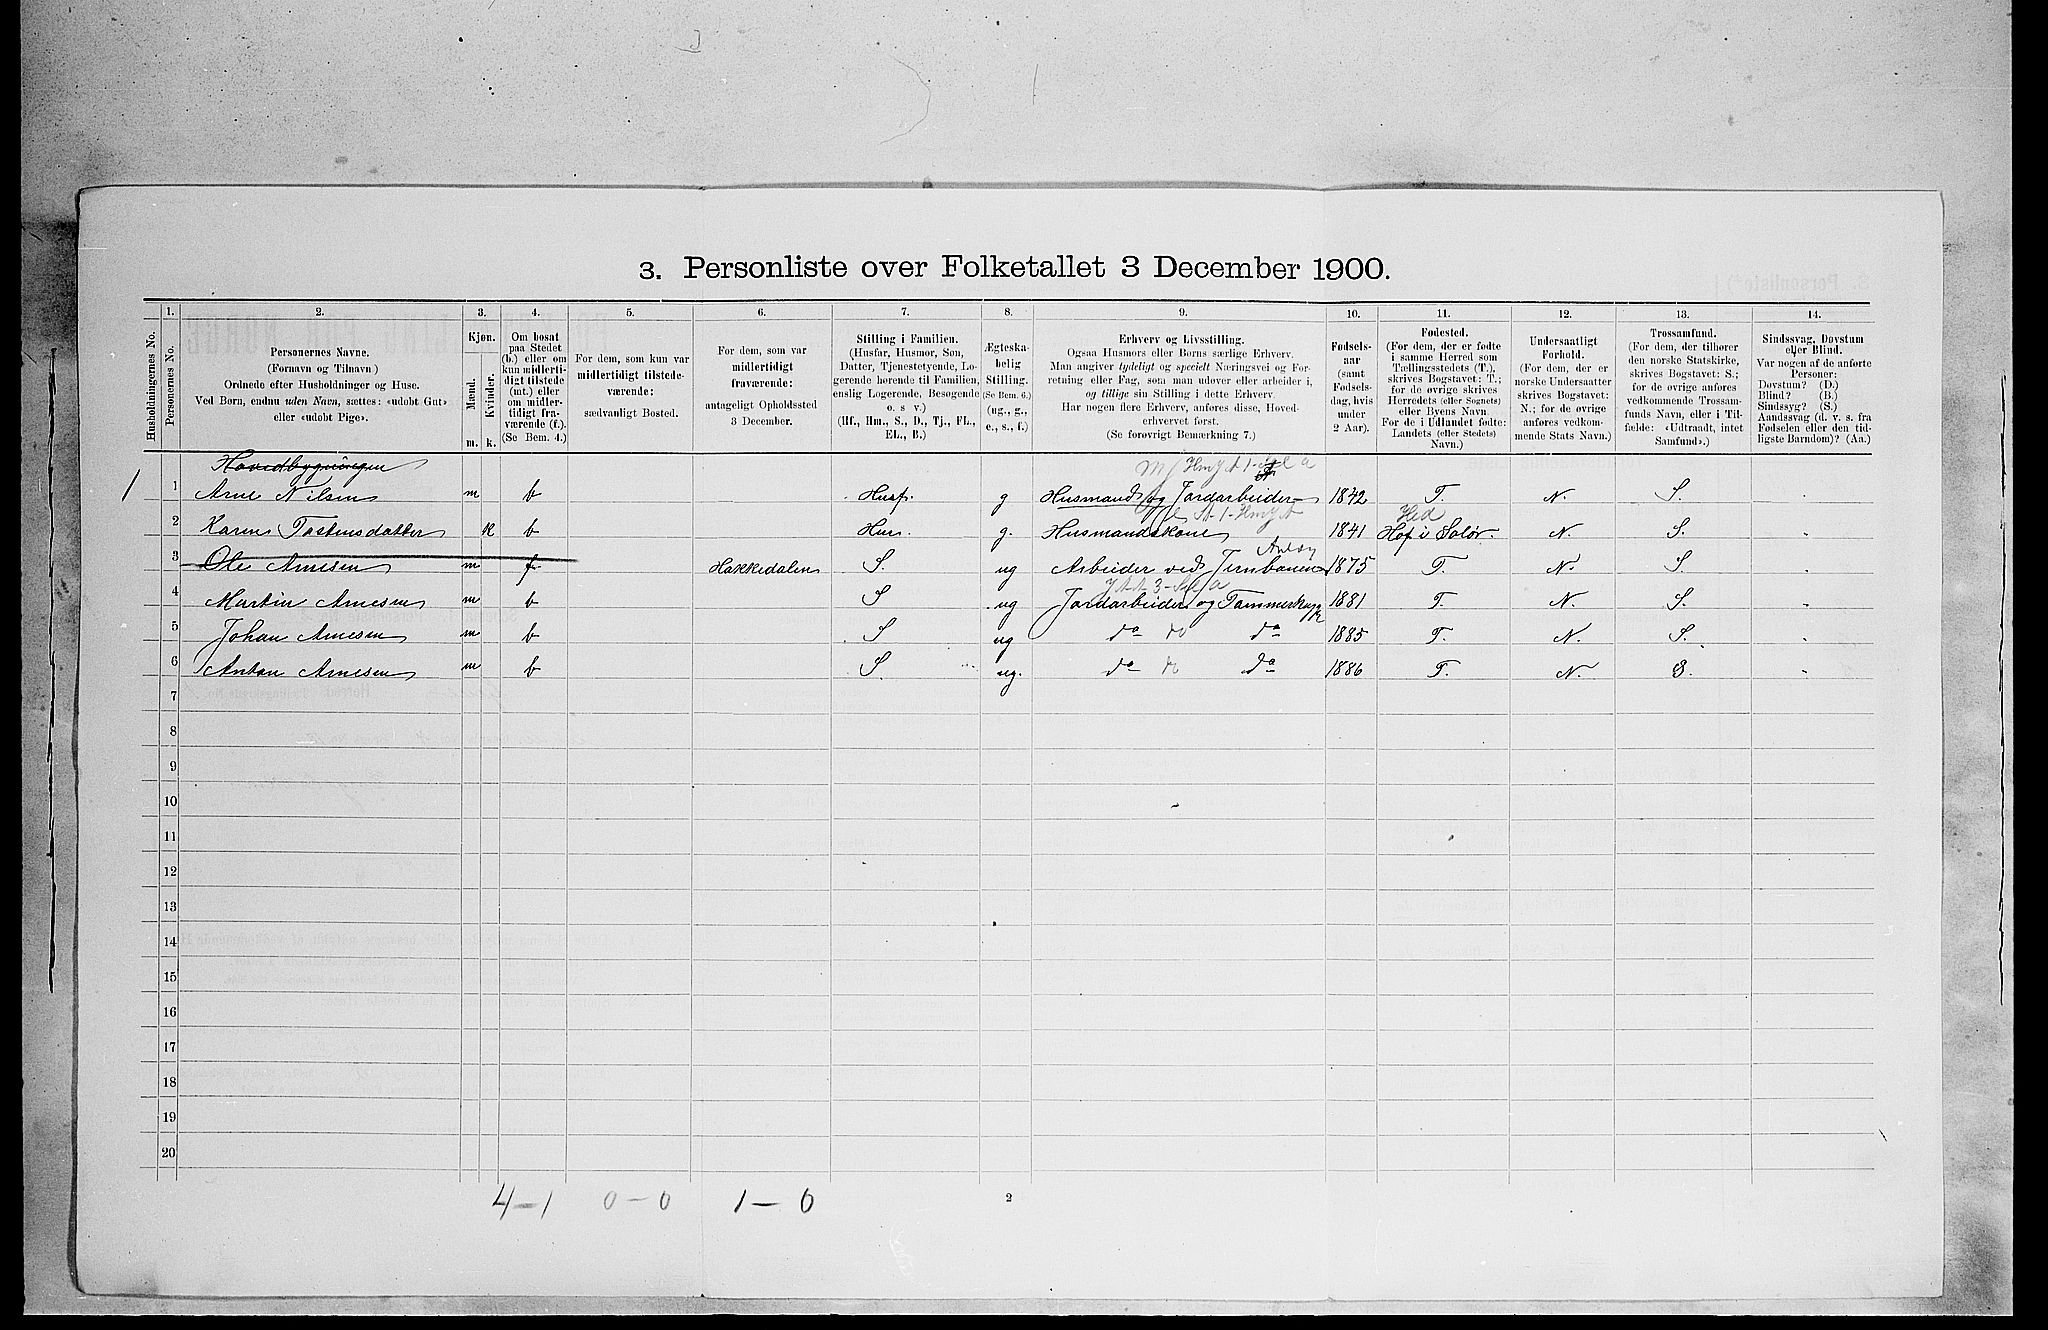 3. Personliste over Folketallet 3 December 1900.
Husholdningernes No.
1. Personernes No.
2. Personernes Navne.
(Fornavn og Tilnavn.)
Ordnede efter Husholdninger og Huse.
Ved Børn, endnu uden Navn, sættes: «udøbt Gut»
eller «udøbt Pige».
3. Kjøn.
Mænd. Kvinder.
m. k.
4. Om bosat
paa Stedet
(b.) eller om
kun midlerti-
digt tilstede
(mt.) eller
om midler-
tidigt fra-
værende (f.).
(Se Bem. 4.)
5. For dem, som kun var
midlertidigt tilstede-
værende:
sædvanligt Bosted.
6. For dem, som var
midlertidigt
fraværende:
antageligt Opholdssted
3 December.
7. Stilling i Familien.
(Husfar, Husmor, Søn,
Datter, Tjenestetyende, Lo-
gerende hørende til Familien,
enslig Logerende, Besøgende
o. s v.)
(Hf., Hm., S., D., Tj., FL.,
EL., B.)
8. Ægteska-
belig
Stilling.
(Se Bem. 6.)
(ug., g.,
e., s., f.)
9. Erhverv og Livsstilling.
Ogsaa Husmors eller Børns særlige Erhverv.
Man angiver tydeligt og specielt Næringsvei og For-
retning eller Fag, som man udøver eller arbeider i,
og tillige sin Stilling i dette Erhverv.
Har nogen flere Erhverv, anføres disse, Hoved-
erhvervet først.
(Se forøvrigt Bemærkning 7.)
10. Fødsels-
aar
(samt
Fødsels-
dag, hvis
under
2 Aar).
11. Fødested.
(For dem, der er fødte
i samme Herred som
Tællingsstedets (T.),
skrives Bogstavet: T.;
for de øvrige skrives
Herredets (eller Sognets)
eller Byens Navn.
For de i Udlandet fødte:
Landets (eller Stedets)
Navn.)
12. Undersaatligt
Forhold.
(For dem, der er
norske Undersaatter
skrives Bogstavet:
N.; for de øvrige
anføres vedkom-
mende Stats Navn.)
13. Trossamfund.
(For dem, der tilhører
den norske Statskirke,
skrives Bogstavet: S.;
for de øvrige anføres
vedkommende Trossam-
funds Navn, eller i Til-
fælde: «Udtraadt, intet
Samfund».)
14. Sindssvag, Døvstum
eller Blind.
Var nogen af de anførte
Personer:
Døvstum? (D.)
Blind? (B.)
Sindssyg? (S.)
Aandssvag (d. v. s. fra
Fødselen eller den tid-
ligste Barndom)? (Aa.)
Hovedbygningen
1 1 Arne Nilsen m b Husf. g Husmand og Jordarbeider 1842 T. N. S.
Hed
2 Karen Tostensdatter k b Hus. g. Husmandskone 1841 Hof i Solør. N. S.
3 Ole Arnesen m f Hakkedalen S. ug Arbeider ved Jernbanen 1875 T. N. S.
4 Martin Arnesen m b S ug Jordarbeider og Tømmerhugger 1881 T. N. S.
5 Johan Arnesen m b S ug do do do 1885 T. N. S.
6 Anton Arnesen m b S. ug. do do do 1886 T. N. S.
7
8
9
10
11
12
13
14
15
16
17
18
19
20
4-1 0-0 1-0 2